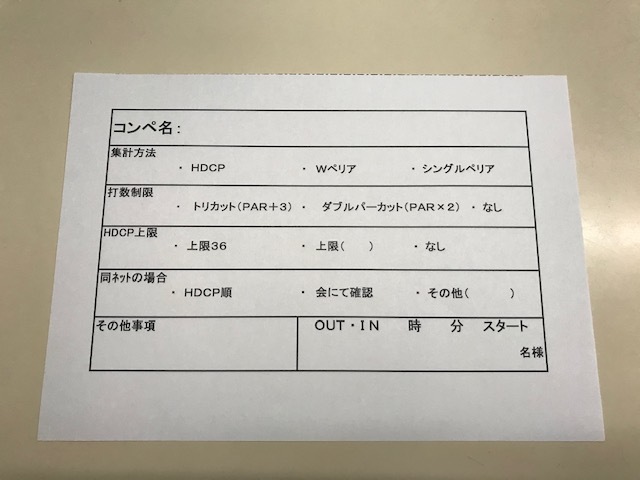 コンペ名：
集計方法
・ HDCP ・ Wペリア ・ シングルペリア
打数制限
・ トリカット(PAR＋3) ・ ダブルパーカット(PAR×2) ・ なし
HDCP上限
・ 上限36 ・ 上限(　　) ・ なし
同ネットの場合
・ HDCP順 ・ 会にて確認 ・ その他(　　　)
その他事項
OUT・IN 時 分 スタート
名様